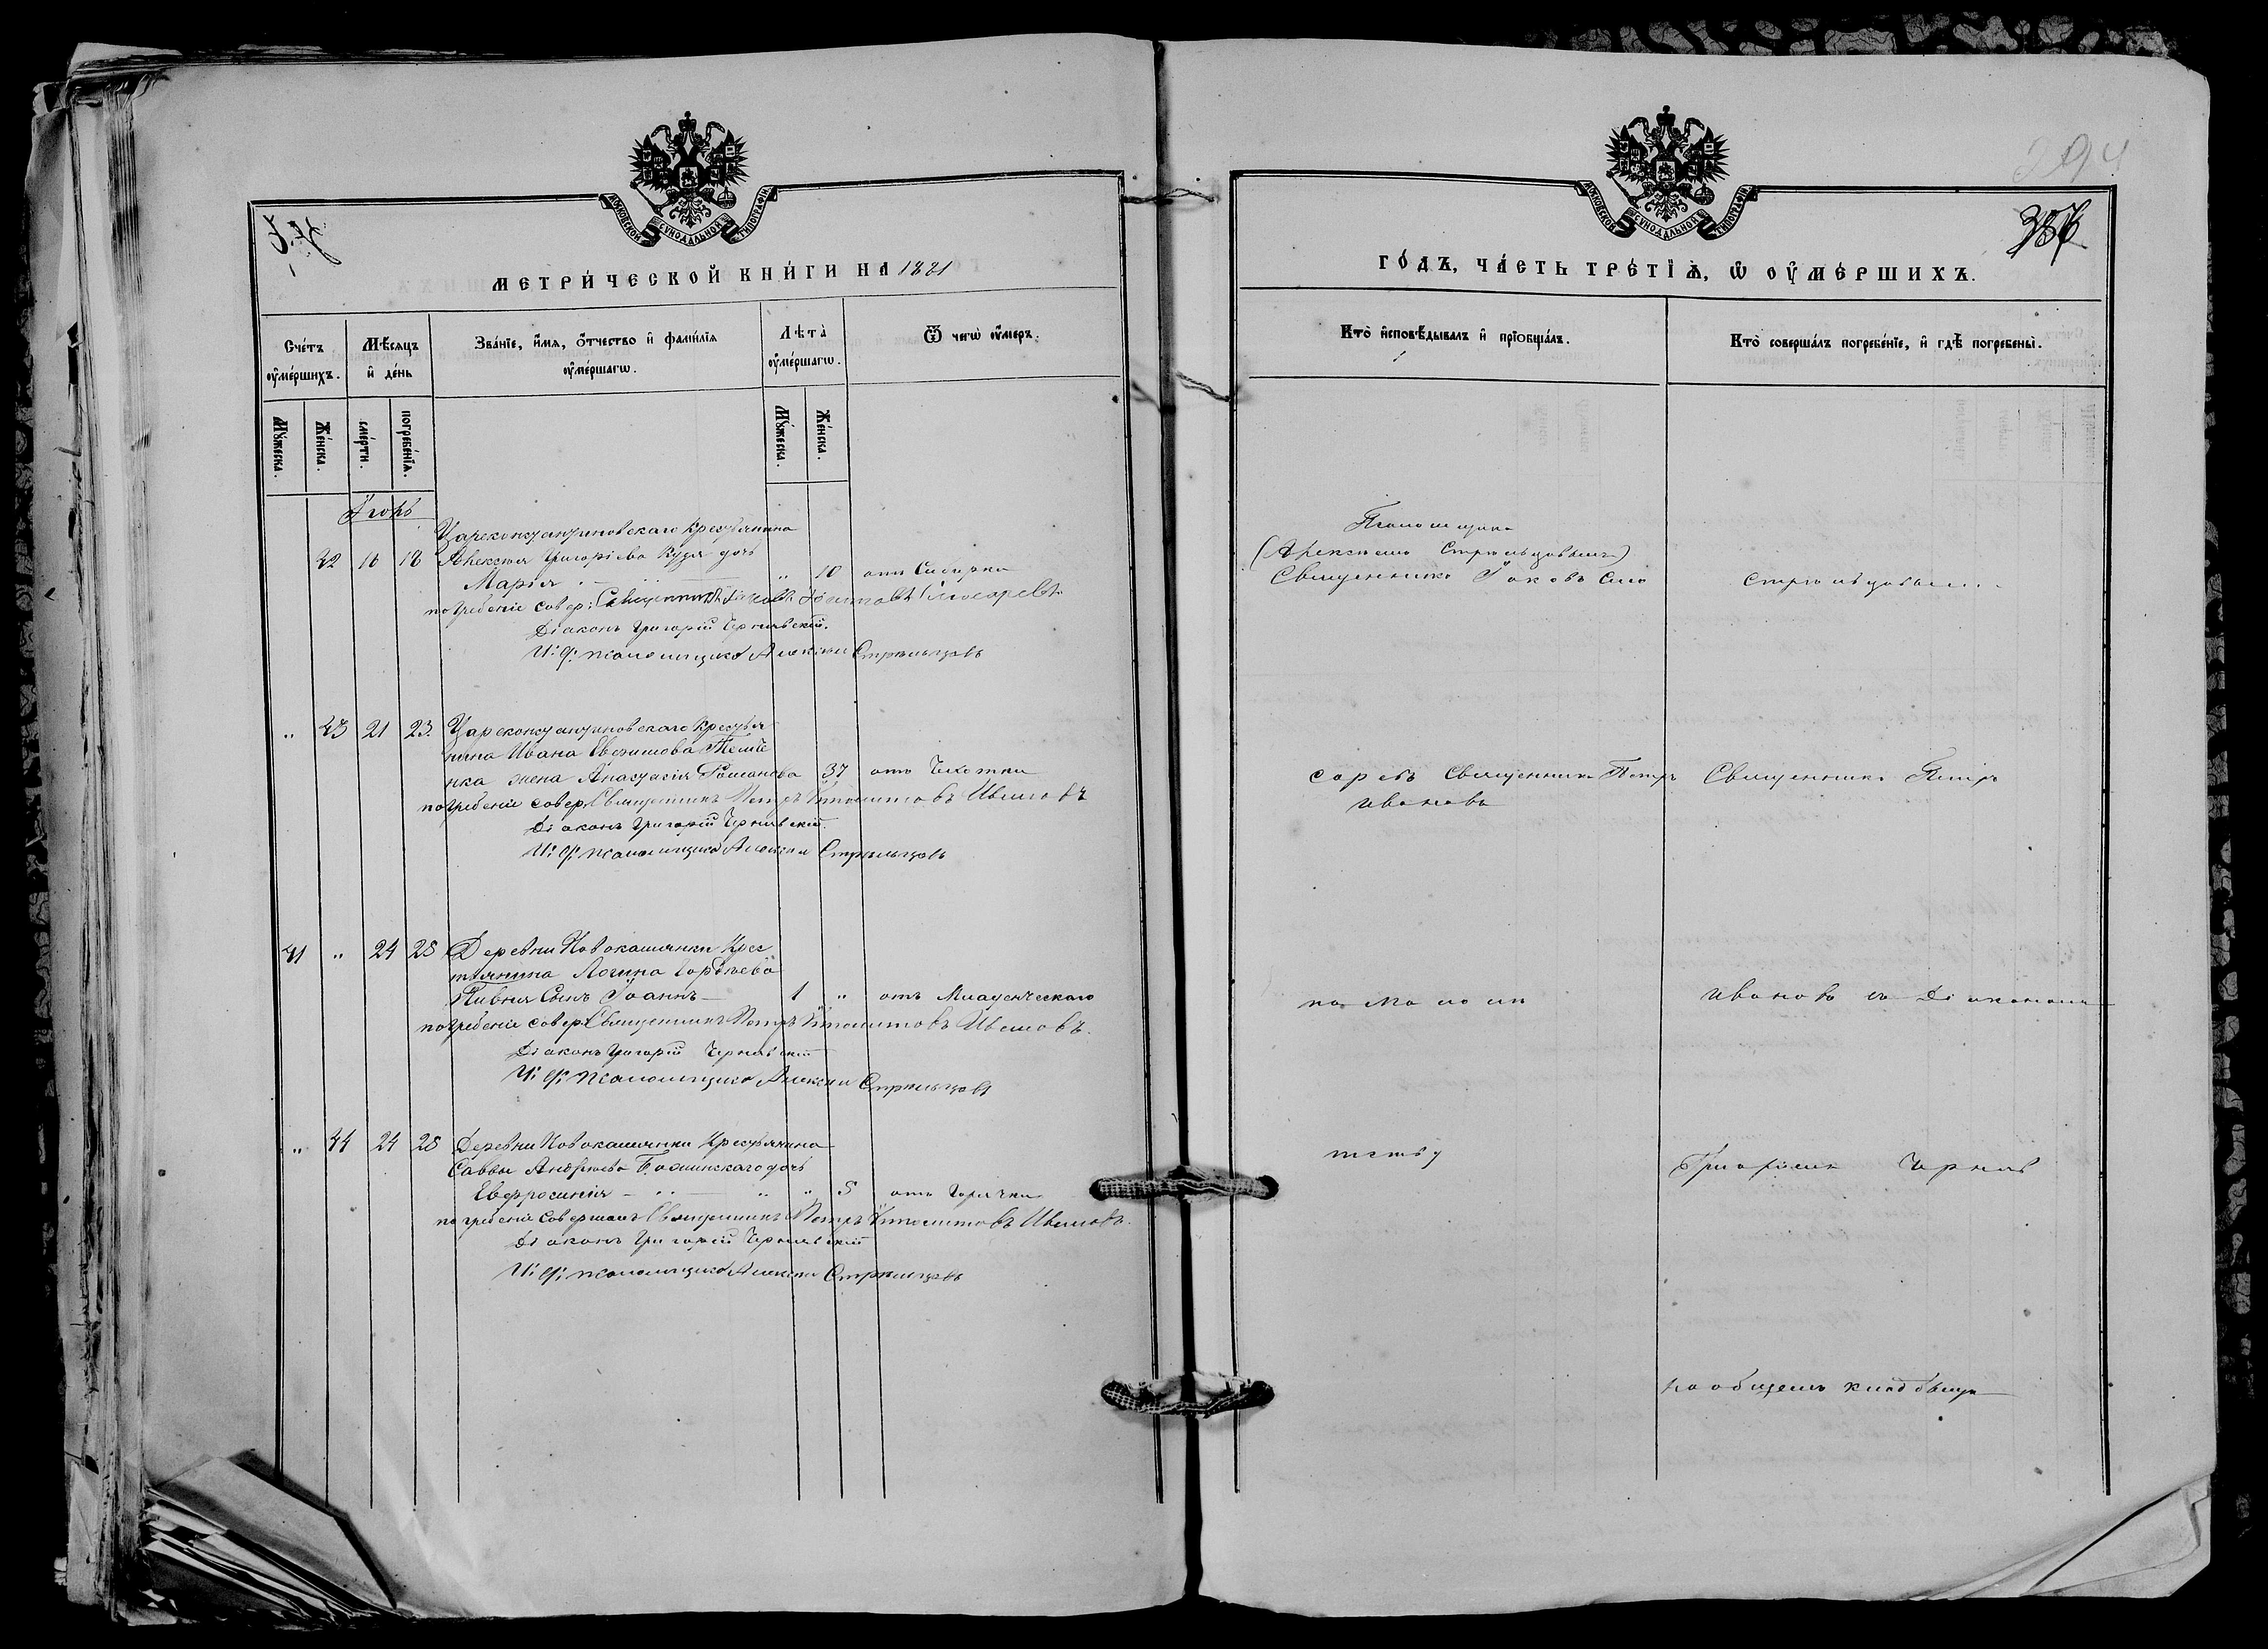 МОСКОВСКОЙ СУНОДАЛЬНОЙ ТИПОГРАФІИ
МЕТРИ́ЧЕСКОЙ КНИ́ГИ НА 1881
Сче́тъ ᲂу҆ме́ршихъ.
Мѣ́сяцъ и҆ де́нь
Зва́нїе, и҆́мя, ѻ҆́тчество и҆ фамилїя ᲂу҆ме́ршагѡ.
Лѣта̀ ᲂу҆ме́ршагѡ.
Ѿ чегѡ̀ ᲂу҆́меръ.
Мꙋжеска.
Же́нска.
сме́рти.
погребе́нїѧ.
Мꙋжеска.
Же́нска.
42 16 18
Цареконстантиновскаго крестьянина
Алексѣя Григоріева дочь
Марія " 10 отъ Сибирки
погребеніе совер: Священникъ Іаковъ Слюсаревъ
Діаконъ Григорій Чернявскій.
И. д. псаломщика Алексѣй Стрѣльцовъ
" 43 21 23. Царсконстантиновскаго крестья
нина Ивана
нка жена Анастасія Романова 37 отъ Чахотки
погребеніе совер: Священникъ Петръ Ивановъ
Діаконъ Григорій Чернявскій.
И. д. псаломщика Алексѣй Стрѣльцовъ
41 " 24 25 Деревни Новокашлинки Крес
тьянина Логина Гордѣева
Пивня Сынъ Іоаннъ 1 " отъ Младенческаго
погребеніе совер: Священникъ Петръ Ивановъ.
Діаконъ Григорій Чернявскій
И. д. псаломщика Алексѣй Стрѣльцовъ
" 44 24 25 Деревни Новокашлинки Крестьянина
Саввы Андреева дочь
Евфросинія " " 5 отъ Горячки
погребеніе совершалъ Священникъ Петръ Ивановъ.
Діаконъ Григорій Чернявскій
И. д. псаломщика Алексѣй Стрѣльцовъ
МОСКОВСКОЙ СУНОДАЛЬНОЙ ТИПОГРАФІИ
ГО́ДЪ, ЧА́СТЬ ТРЕ́ТЇѦ, Ѡ҆ ОУ҆МЕ́РШИХЪ.
Кто̀ и҆сповѣ́дывалъ и҆ прїѡбща́лъ.
Кто̀ соверша́лъ погребе́нїе, и҆ гдѣ̀ погребены̀.
Псаломщикъ
(Алексѣемъ Стрѣльцовымъ)
Священникъ Іаковъ Слю
Стрѣльцовымъ.
саревъ Священникъ Петръ
Ивановъ
Священникъ Петръ
по мало лѣ
Ивановъ съ Діакономъ
тству
Григоріемъ Черняв
на общемъ кладбищѣ